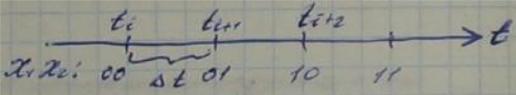 tᵢ tᵢ₊₁ tᵢ₊₂ t
x₁ x₂: 00 Δt 01 10 11